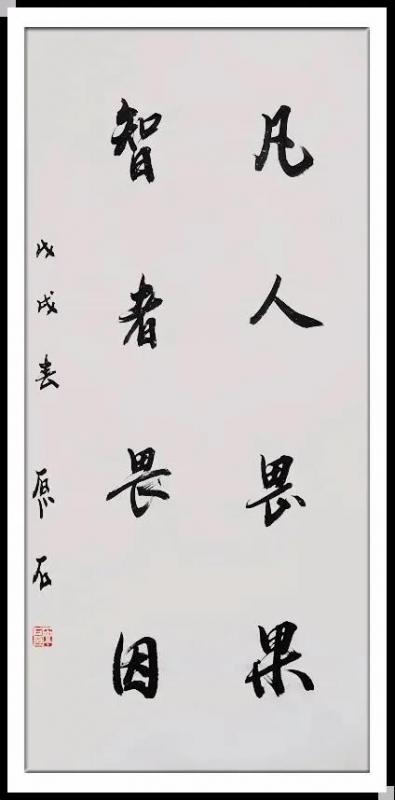 凡人畏果
智者畏因
戊戌春 原石